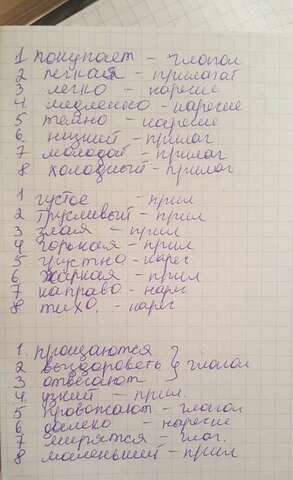 1 покупает – глагол
2 легкая – прилагат
3 легко – наречие
4 медленно – наречие
5 темно – наречие
6 низкий – прилаг
7 молодой – прилаг
8 холодный – прилаг
1 густое – прил
2 трусливый – прил
3 злая – прил
4 горькая – прил
5 грустно – нареч
6 жаркая – прил
7 направо – нареч
8 тихо. – нареч
1. прощаются
2 выздороветь } глагол
3 отвечают
4 узкий – прил.
5 провожают – глагол
6 далеко – наречие
7 мирятся – глаг.
8 маленький – прил